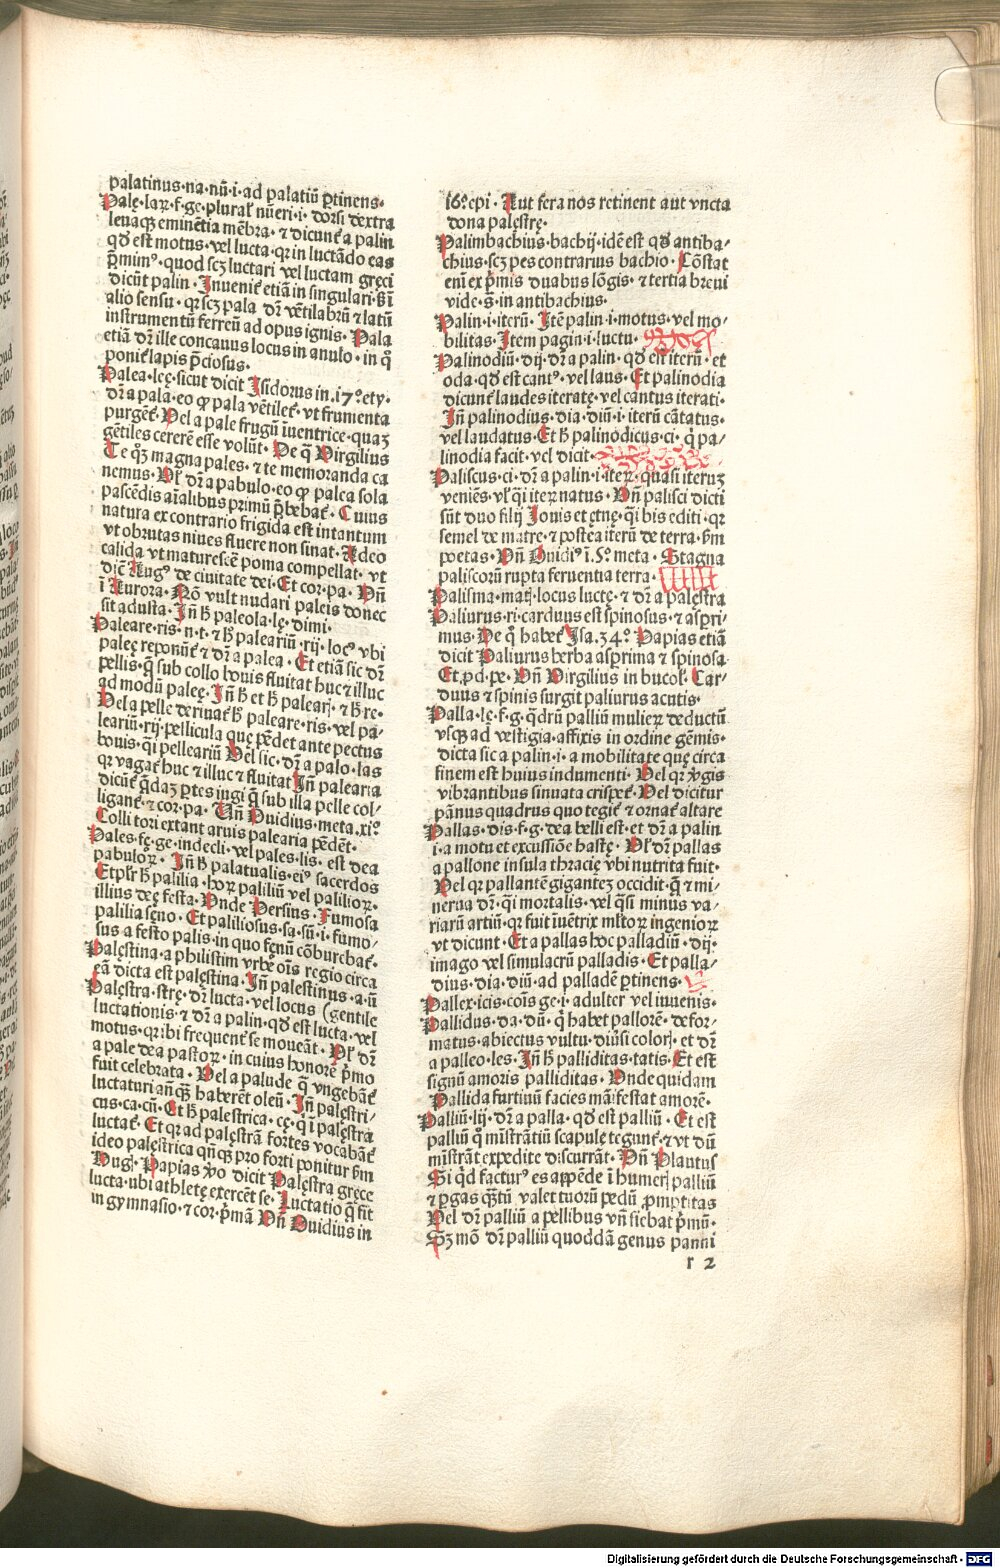 palatinus·na·nū·i·ad palatiū ꝑtinens·
Palę·laꝝ·f·ge·plural̄ nūeri·i· dorsi dextra
leuaqꝫ eminētia mēbra· ⁊ dicunt̄ a palin
qđ est motus·vel lucta·qꝛ in luctādo eas
p̄mimꝰ·quod scꝫ luctari vel luctam greci
dicūt palin·Inuenit̄ etiā in singulari·s̄ ī
alio sensu·qꝛ scꝫ pala dr̄ vētilabrū ⁊ latū
instrumentū ferreū ad opus ignis· Pala
etiā dr̄ ille concauus locus in anulo·in q̊
ponit̄ lapis p̄ciosus·
Palea·leę·sicut dicit Isidorus in.17º ety·
dr̄ a pala·eo ꝙ pala vētilet̄·vt frumenta
purgēt̄· Vel a pale frugū īuentrice·quaꝫ
gētiles cererē esse volūt· De q̊ Virgilius
Te qꝫ magna pales·⁊ te memoranda ca
nemus· Vl̄ dr̄ a pabulo·eo ꝙ palea sola
pascēdis aīalibus primū p̄bebat̄· Cuius
natura ex contrario frigida est intantum
vt obrutas niues fluere non sinat· Adeo
calida vt maturescere poma compellat·vt
dic̄ Augꝰ de ciuitate dei·Et cor·pa· Vn̄
ī Aurora·Nō vult nudari paleis donec
sit adusta·In̄ h̄ paleola·lę·dimi·
Paleare·ris·n·t·⁊ h̄ paleariū·rij·locꝰ vbi
paleę reponūt̄ ⁊ dr̄ a palea· Et etiā sic dr̄
pellis·q̄ sub collo bouis fluitat huc ⁊ illuc
ad modū paleę· In̄ h̄ et h̄ palearꝭ·⁊ h̄·re·
Vel a pelle deriuat̄ h̄ paleare·ris·vel pa/
leariū·rij·pellicula que pēdet ante pectus
bouis·q̄i pelleariū Vel sic·dr̄ a palo·las
qꝛ vagat̄ huc ⁊ illuc ⁊ fluitat In̄ palearia
dicūt̄ q̄daꝫ ꝑtes iugi q̄ sub illa pelle col/
ligant̄·⁊ cor·pa· Vn̄ Ouidius·meta·xiº
Colli tori extant aruis palearia pēdent̄·
Pales·fę·ge·indecli·vel pales·lis· est dea
pabuloꝝ· In̄ h̄ palatualis·eiꝰ sacerdos
Et pl̄r h̄ palilia·hoꝝ paliliū vel palilioꝝ·
illius deę festa·Vnde Persius·Fumosa
palilia fęno· Et paliliosus·sa·sū·i·fumo/
sus a festo palis·in quo fęnū cōburebat̄·
Palęstina·a philistim vrbe oīs regio circa
eā dicta est palęstina·In̄ palestinus·a·ū
Palęstra·strę·dr̄ lucta·vel locus (gentile
luctationis·⁊ dr̄ a palin·qđ est lucta·vel
motus·qꝛ ibi frequent̄ se moueāt· Vl̄ dr̄
a pale dea pastoꝝ·in cuius honorē p̄mo
fuit celebrata· Vel a palude q̄ vngebāt̄
luctaturi an̄qꝫ haberēt oleū·In̄ palęstri/
cus·ca·cū·Et h̄ palestrica·cę·q̄ ī palęstra
luctat̄·Et qꝛ ad palęstrā fortes vocabāt̄
ideo palęstrica qn̄qꝫ pro forti ponitur s̄m
Hugꝭ·Papias ꝟo dicit Palęstra gręce
lucta·vbi athletę exercēt se· Luctatio q̄ fit
in gymnasio·⁊ cor·p̄mā Vn̄ Ouidius in
16º epi· Aut fera nos retinent aut vncta
dona palęstrę·
Palimbachius·bachij·idē est qđ antiba/
chius·scꝫ pes contrarius bachio· Cōstat
enī ex p̄mis duabus lōgis·⁊ tertia breui
vide·s̄·in antibachius·
Palin·i·iterū· Itē palin·i·motus·vel mo/
bilitas·Item pagin·i·luctu·
Palinodiū·dij·dr̄ a palin·qđ est iterū·et
oda·qđ est cantꝰ·vel laus·Et palinodia
dicunt̄ laudes iteratę·vel cantus iterati·
In̄ palinodius·dia·diū·i·iterū cātatus·
vel laudatus·Et h̄ palinodicus·ci·q̄ pa/
linodia facit·vel dicit·
Paliscus·ci·dr̄ a palin·i·iteꝝ·quasi iteruꝫ
veniēs·vl̄ q̄i iteꝝ natus· Vn̄ palisci dicti
sūt duo filij Iouis et ętnę·q̄i bis editi·qꝛ
semel de matre·⁊ postea iterū de terra·s̄m
poetas·Vn̄ Ouidiꝰ ī.5º meta· Stagna
paliscorū rupta feruentia terra·
Palisma·matꝭ·locus luctę·⁊ dr̄ a palęstra
Paliurus·ri·carduus est spinosus·⁊ aspri/
mus·De q̊ habet̄ Isa.34º Papias etiā
dicit Paliurus herba asprima ⁊ spinosa·
Et·ꝓd·pe·Vn̄ Virgilius in bucol· Car/
duus ⁊ spinis surgit paliurus acutis·
Palla·lę·f·g·q̄drū palliū mulieꝝ deductū
vsqꝫ ad vestigia·affixis in ordine gēmis·
dicta sic a palin·i·a mobilitate quę circa
finem est huius indumenti· Vel qꝛ ꝟgis
vibrantibus sinuata crispet̄·Vel dicitur
pānus quadrus quo tegit̄ ⁊ ornat̄ altare
Pallas·dis·f·g·dea belli est·et dr̄ a palin
·i·a motu et excussiōe hastę· Vl̄ dr̄ pallas
a pallone insula thracię vbi nutrita fuit·
Vel qꝛ pallantē giganteꝫ occidit·q̄ ⁊ mi/
nerua dr̄·q̄i mortalis·vel q̄si minus va/
riarū artiū·qꝛ fuit īuētrix mltoꝝ ingenioꝝ
vt dicunt·Et a pallas hoc palladiū·dij·
imago vel simulacrū palladis·Et palla/
dius·dia·diū·ad palladē ꝑtinens·
Pallex·icis·cōis ge·i·adulter vel iuuenis·
Pallidus·da·dū· q̄ habet pallorē·defor/
matus·abiectus vultu·diūsi colorꝭ·et dr̄
a palleo·les·In̄ h̄ palliditas·tatis·Et est
signū amoris palliditas·Vnde quidam
Pallida furtiuū facies māifestat amorē·
Palliū·lij·dr̄ a palla·qđ est palliū·Et est
palliū q̊ mīstrātiū scapulę tegunt̄·⁊ vt dū
mīstrāt expedite discurrāt· Vn̄ Plautus
Si q̄d facturꝰ es appēde ī humerꝭ palliū
⁊ ꝑgas q̄stū valet tuorū pedū ꝓmptitas
Vel dr̄ palliū a pellibus vn̄ fiebat p̄mū·
Sꝫ mō dr̄ palliū quoddā genus panni
r 2
Digitalisierung gefördert durch die Deutsche Forschungsgemeinschaft - DFG